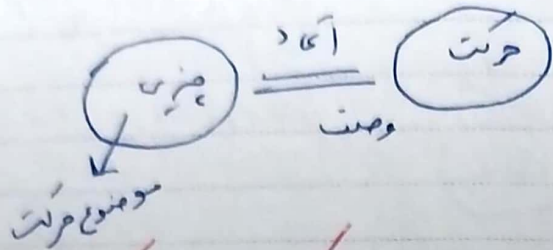 حرکت
اتحاد
وصف
چیزی
موضوع حرکت